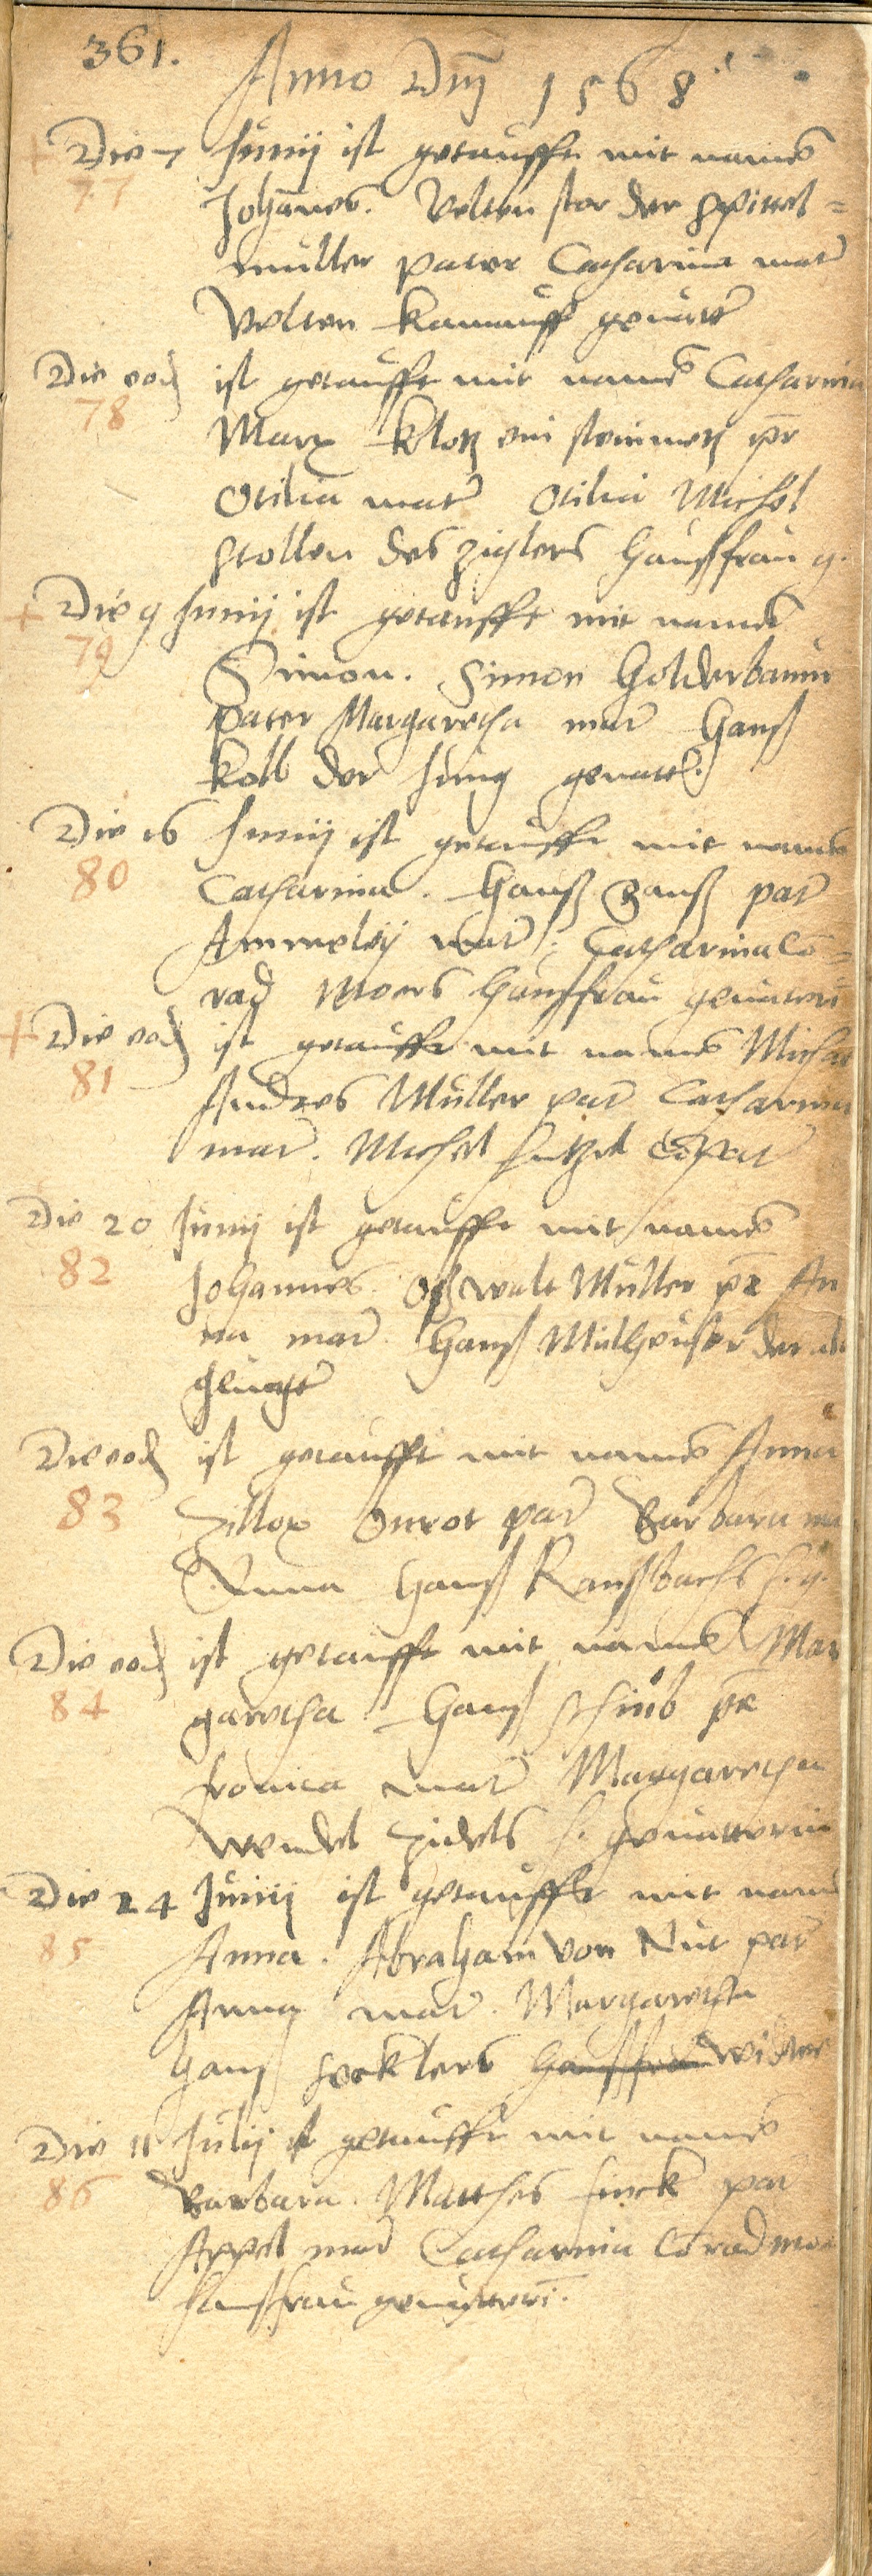 361.
Anno Dnj 1568
Die 7 Junij ist getaufft mit namē
77
Johānes. Velten stor der spittel=
müller pater Catharina mat̃
Velten kamauff geuatt̃
Die eod ist getaufft mit namē Catharina
78
Marx klotz ein steinmetz pr̄
Otilia mat̃ Otilia Michel
stollen des zieglers haussfrau g.
Die 9 Junij ist getaufft mit namē
79
Simon. Simon Golderbaum
pater Margaretha mat̃ Hanß
Koll der Jung geuatt̃.
Die 16 Junij ist getaufft mit namē
80
Catharina. Hanß Ganß pat̃
Ammeleÿ mat̃. Catharina Cō=
rad Moers haussfrau geuatteri
Die eod ist getaufft mit namē Michae
81
Andres Müller pat̃ Catharina
mat̃. Michel
Die 20 Junij ist getaufft mit namē
82
Johannes. Oßwalt Müller pr̄ An
na mat̃ Hanß Mülheuser der alt
geuatt̃
Die eod ist getaufft mit namē Anna
83
Zillox Onrot pat̃ Barbara ma
Anna Hanß Ranßbachs h. g.
Die eod ist getaufft mit namē Mar
84
garetha Hanß schüb pr̄
fronica mat̃ Margaretha
Wendel Zidels h. geuatterin
Die 24 Junij ist getaufft mit nam
85
Anna. Abraham von Nut pat̃
Anna mat̃. Margaretha
Hanß secklers haussfrau witwe
Die 11 Julij ist getaufft mit namē
86
Barbara. Matthes finck pat̃
Appel mat̃ Catharina Cōrad moe
haussfrau geuatteri.